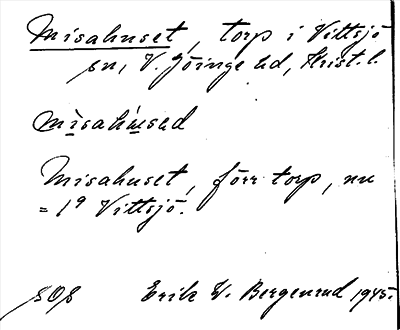 Misahuset, torp i Vittsjö
sn, V. Göinge hd, Krist. l.
misahùsәd
Misahuset, förr torp, nu
= 1⁹ Vittsjö.
SOS Erik W. Bergenrud 1945.